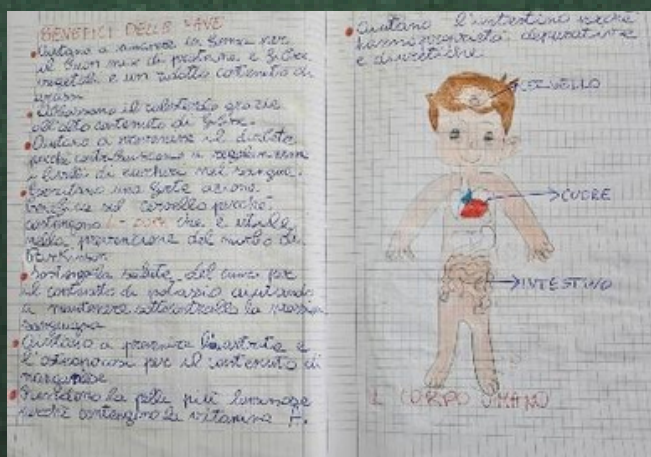 BENEFICI DELLE FAVE
Aiutano a
il buon mix di proteine e fibre
vegetali e un ridotto contenuto di
grassi
Abbassano il colesterolo grazie
all'alto contenuto di fibre.
Aiutano a prevenire il diabete
perché contribuiscono a
i livelli di zucchero nel sangue.
Esercitano una forte azione
benefica sul cervello perché
contengono L-DOPA che è utile
nella prevenzione del morbo di
Parkinson
la salute del cuore per
il contenuto di potassio aiutando
a mantenere sotto controllo la pressione
sanguigna
Aiutano a prevenire l'artrite e
l'osteoporosi per il contenuto di
manganese
Rendono la pelle più luminosa
perché contengono la vitamina A.
Aiutano l'intestino perché
hanno proprietà depurative
e diuretiche.
CERVELLO
CUORE
INTESTINO
IL CORPO UMANO